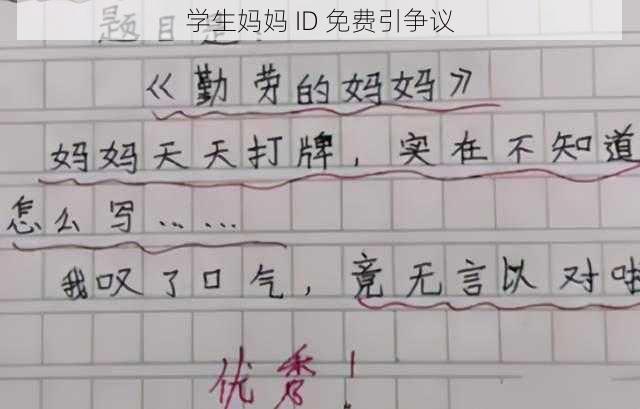 学生妈妈 ID 免费引争议
题目是：
《勤劳的妈妈》
妈妈天天打牌，实在不知道
怎么写……
我叹了口气，竟无言以对啦
优秀！